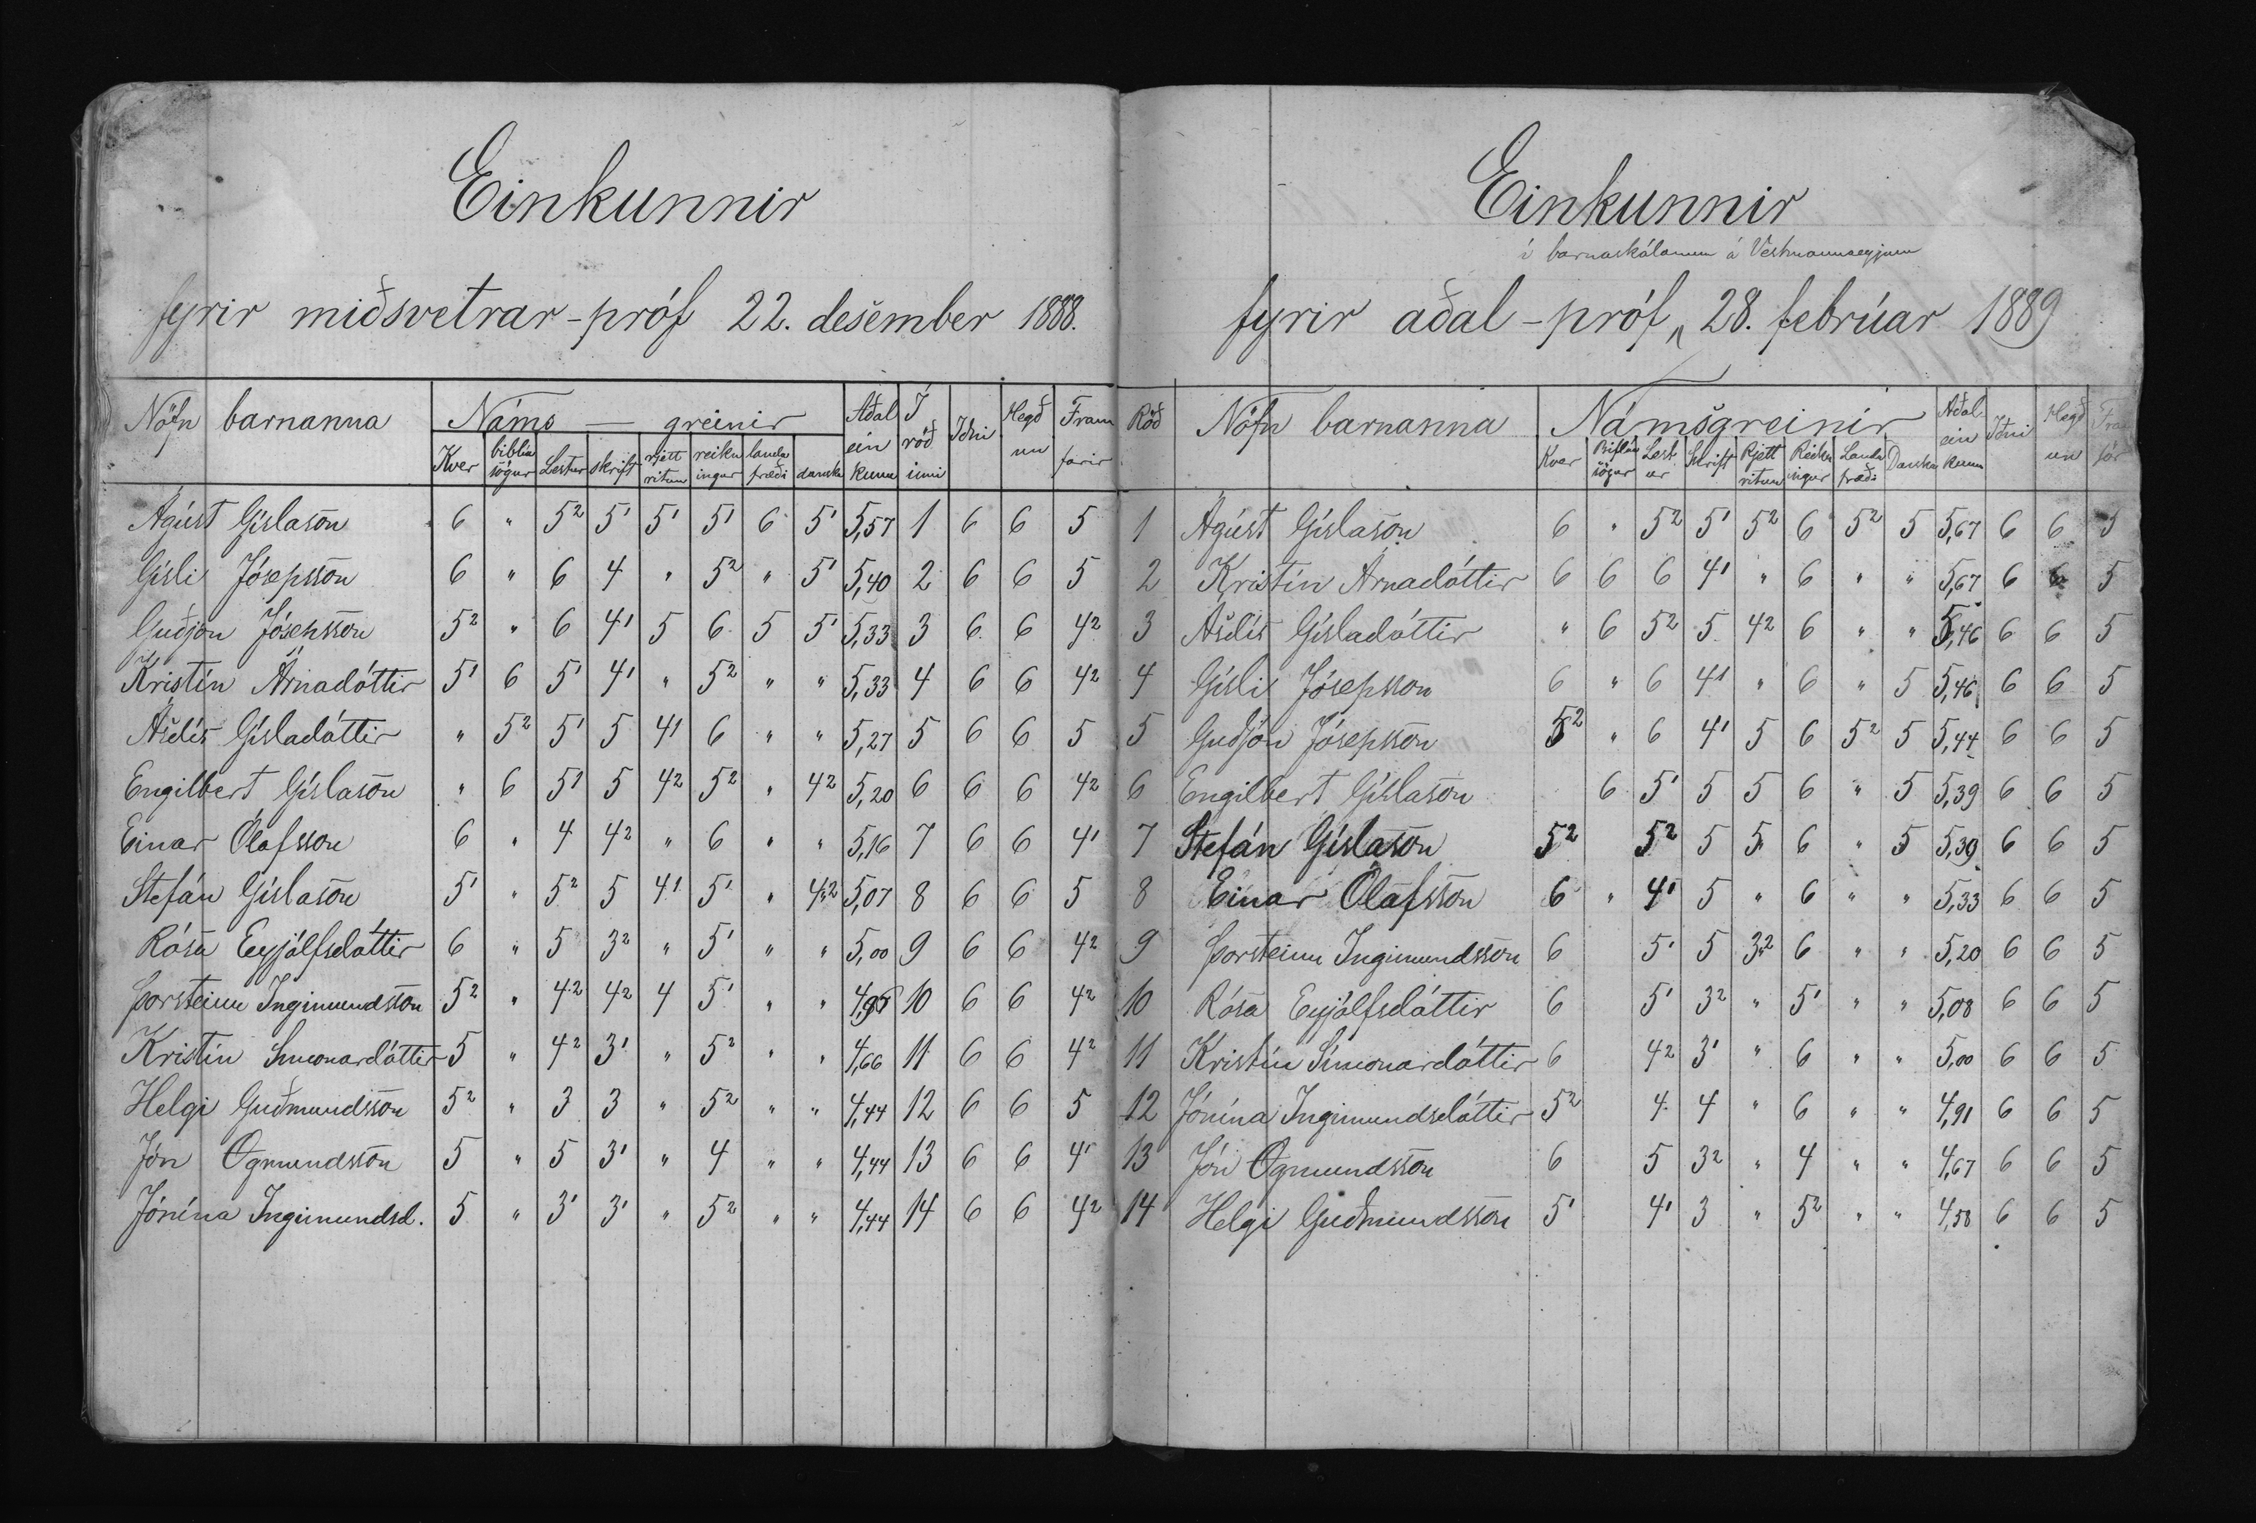 Einkunnir
fyrir miðsvetrar-próf 22. desember 1888.
Nöfn barnanna Náms-greinir Aðal einkunn Í röðinni Iðni Hegðun Framfarir
Kver bibliusögur Lestur skrift rjettritun reikningur landafræði danska
Ágúst Gíslason 6 " 5² 5¹ 5¹ 5¹ 6 5¹ 5,57 1 6 6 5
Gísli Jósepsson 6 " 6 4 " 5² " 5¹ 5,40 2 6 6 5
Guðjón Jósepsson 5² " 6 4¹ 5 6 5 5¹ 5,33 3 6 6 4²
Kristín Árnadóttir 5¹ 6 5¹ 4¹ " 5² " " 5,33 4 6 6 4²
Ásdís Gísladóttir " 5² 5¹ 5 4¹ 6 " " 5,27 5 6 6 5
Engilbert Gíslason " 6 5¹ 5 4² 5² " 4² 5,20 6 6 6 4²
Einar Ólafsson 6 " 4 4² " 6 " " 5,16 7 6 6 4¹
Stefán Gíslason 5¹ " 5² 5 4¹ 5¹ " 4² 5,07 8 6 6 5
Rósa Eyjólfsdóttir 6 " 5 3² " 5¹ " " 5,00 9 6 6 4²
Þorsteinn Ingimundsson 5² " 4² 4² 4 5¹ " " 10 6 6 4²
Kristín Símonardóttir 5 " 4² 3¹ " 5² " " 4,66 11 6 6 4²
Helgi Guðmundsson 5² " 3 3 " 5² " " 4,44 12 6 6 5
Jón Ögmundsson 5 " 5 3¹ " 4 " " 4,44 13 6 6 4¹
Jónína Ingimundsd. 5 " 3¹ 3¹ " 5² " " 4,44 14 6 6 4²
Einkunnir
í barnaskólanum á Vestmannaeyjum
fyrir aðal-próf 28. febrúar 1889
Röð Nöfn barnanna Námsgreinir Aðal einkunn Iðni Hegðun Framför
Kver Biflíusögur Lestur Skrift Rjettritun Reikningur Landafræði Danska
1 Ágúst Gíslason 6 " 5² 5¹ 5² 6 5² 5 5,67 6 6 5
2 Kristín Árnadóttir 6 6 6 4¹ " 6 " " 5,67 6 6 5
3 Ásdís Gísladóttir " 6 5² 5 4² 6 " " 5,46 6 6 5
4 Gísli Jósepsson 6 " 6 4¹ " 6 " 5 5,46 6 6 5
5 Guðjón Jósepsson 5² " 6 4¹ 5 6 5² 5 5,44 6 6 5
6 Engilbert Gíslason 6 5¹ 5 5 6 " 5 5,39 6 6 5
7 Stefán Gíslason 5² 5² 5 5 6 " 5 5,39 6 6 5
8 Einar Ólafsson 6 " 4¹ 5 " 6 " " 5,33 6 6 5
9 Þorsteinn Ingimundsson 6 5¹ 5 3² 6 " " 5,20 6 6 5
10 Rósa Eyjólfsdóttir 6 5¹ 3² " 5¹ " " 5,08 6 6 5
11 Kristín Símonardóttir 6 4² 3¹ " 6 " " 5,00 6 6 5
12 Jónína Ingimundsdóttir 5² 4 4 " 6 " " 4,91 6 6 5
13 Jón Ögmundsson 6 5 3² " 4 " " 4,67 6 6 5
14 Helgi Guðmundsson 5¹ 4¹ 3 " 5² " " 4,58 6 6 5